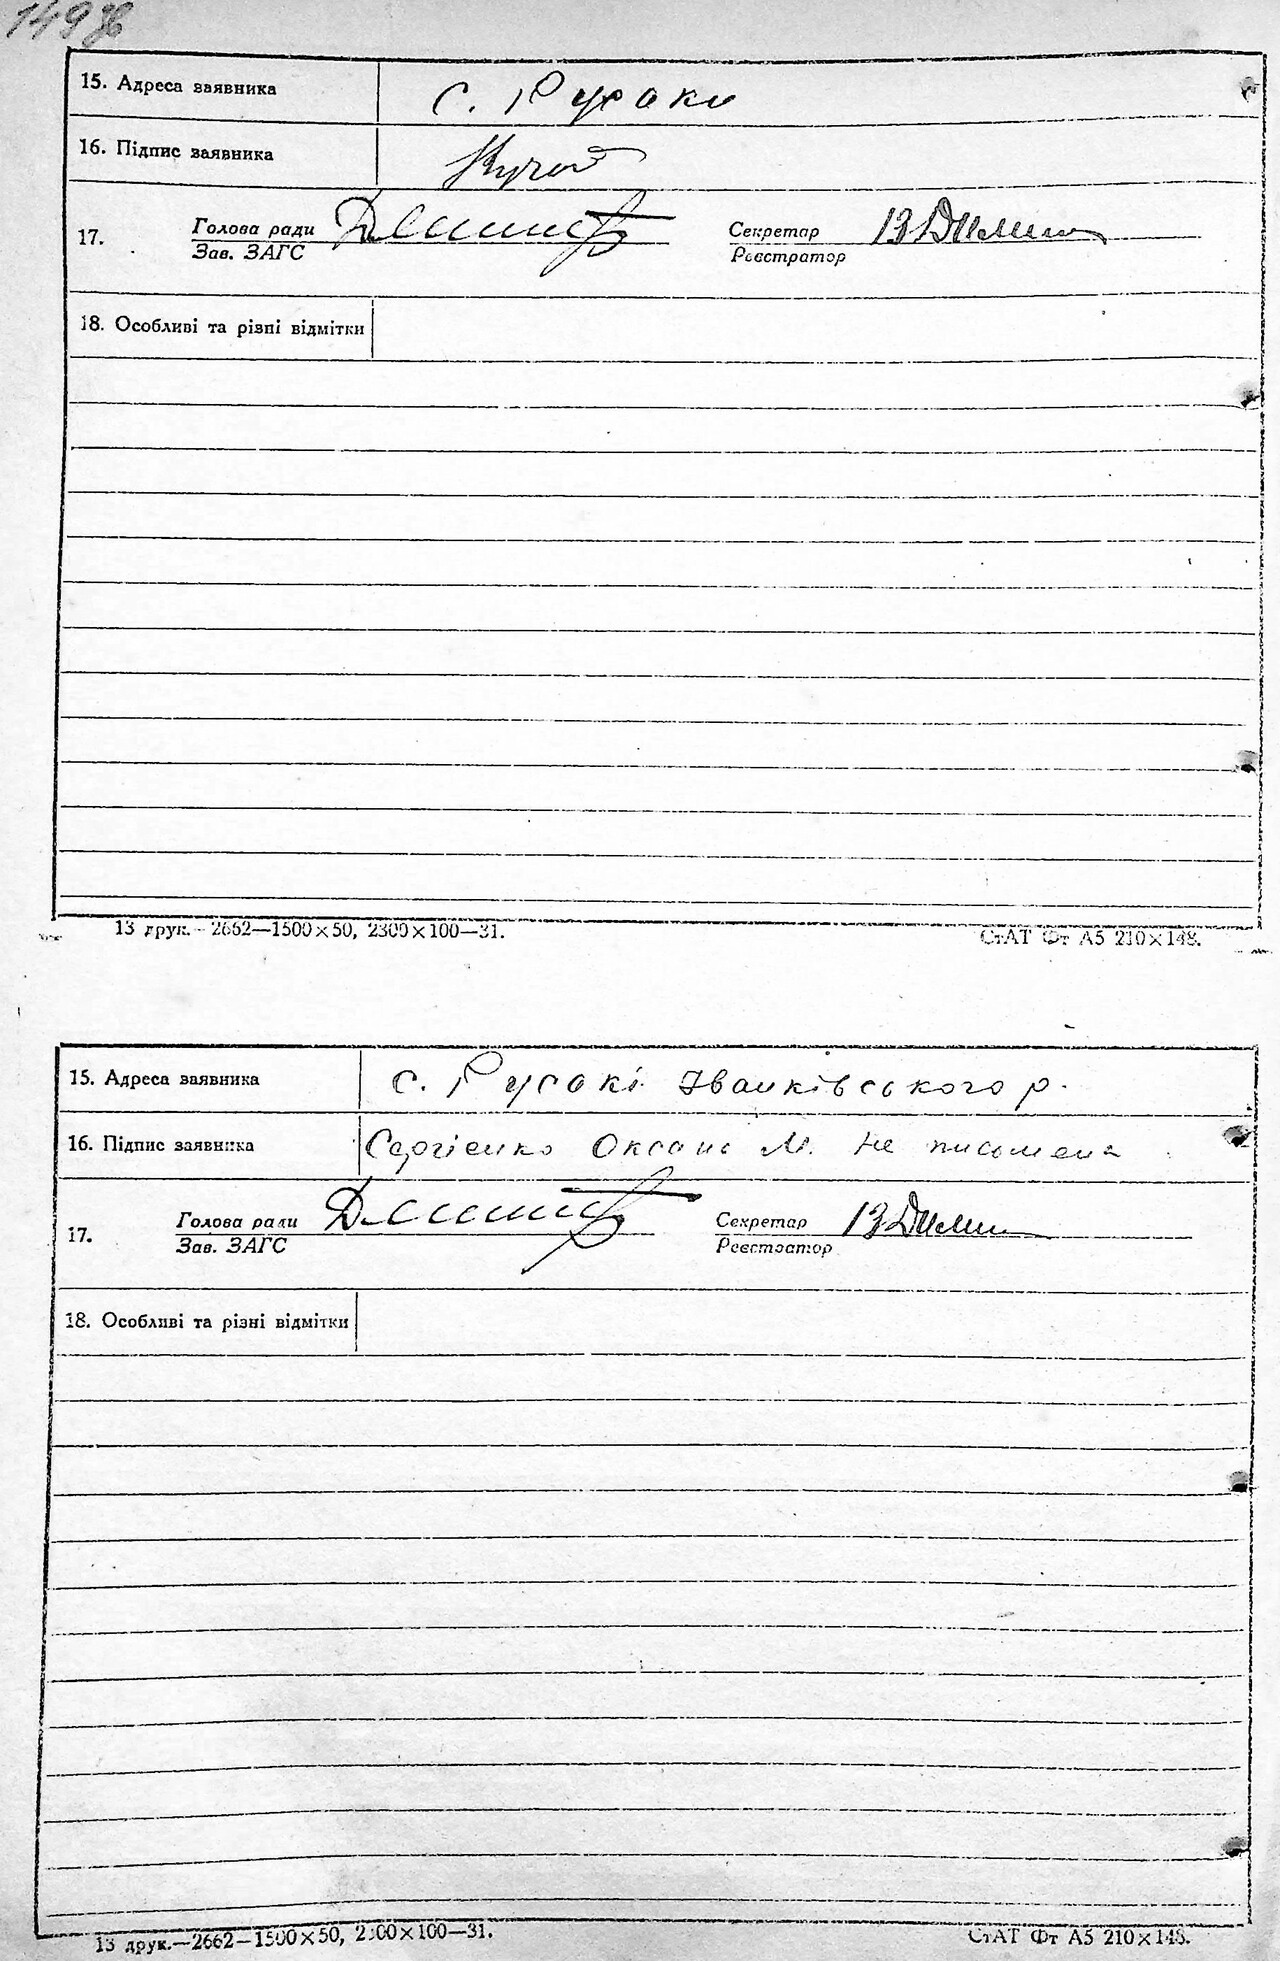 149
15. Адреса заявника с. Русаки
16. Підпис заявника
17. Голова ради Секретар
Зав. ЗАГС Реєстратор
18. Особливі та різні відмітки
13 друк.—2662—1500×50, 2300×100—31. СтАТ Фт А5 210×148.
15. Адреса заявника с. Русакі Іванківського р.
16. Підпис заявника Сергієнко Оксана М. не письмена
17. Голова ради Секретар
Зав. ЗАГС Реєстратор
18. Особливі та різні відмітки
13 друк.—2662—1500×50, 2300×100—31. СтАТ Фт А5 210×148.